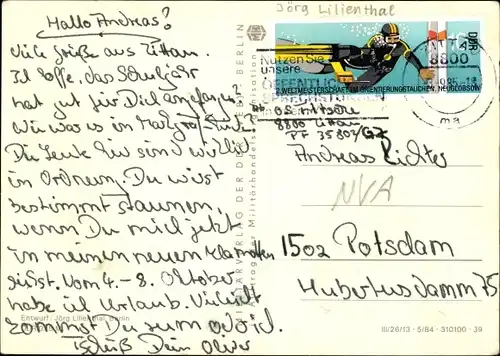 Hallo Andreas?
Viele Grüße aus Zittau.
Ich hoffe, das Schuljahr
hat gut für Dich angefangen?
Wie war's in
Die Leute hier sind wirklich
in Ordnung. Du wirst
bestimmt staunen,
wenn Du mich jetzt
in meinen neuen Klamotten
siehst. Vom 4.-8. Oktober
habe ich Urlaub. Vielleicht
kommst Du zum
tschüß Dein Oliver
Entwurf: Jörg Lilienthal, Berlin
MILITÄRVERLAG DER DDR BERLIN
im Auftrag der Militärhandelsorganisation
Jörg Lilienthal
DDR
WELTMEISTERSCHAFT IM ORIENTIERUNGSTAUCHEN, NEUGLOBSOW
Nutzen Sie
unsere
ÖFFENTLICHEN
SPRECHSTUNDEN
8800
8800 Zittau
PF 35807/GZ
Andreas Richter
NVA
1502 Potsdam
Hubertusdamm 75
III/26/13 · 5/84 · 310100 · 39